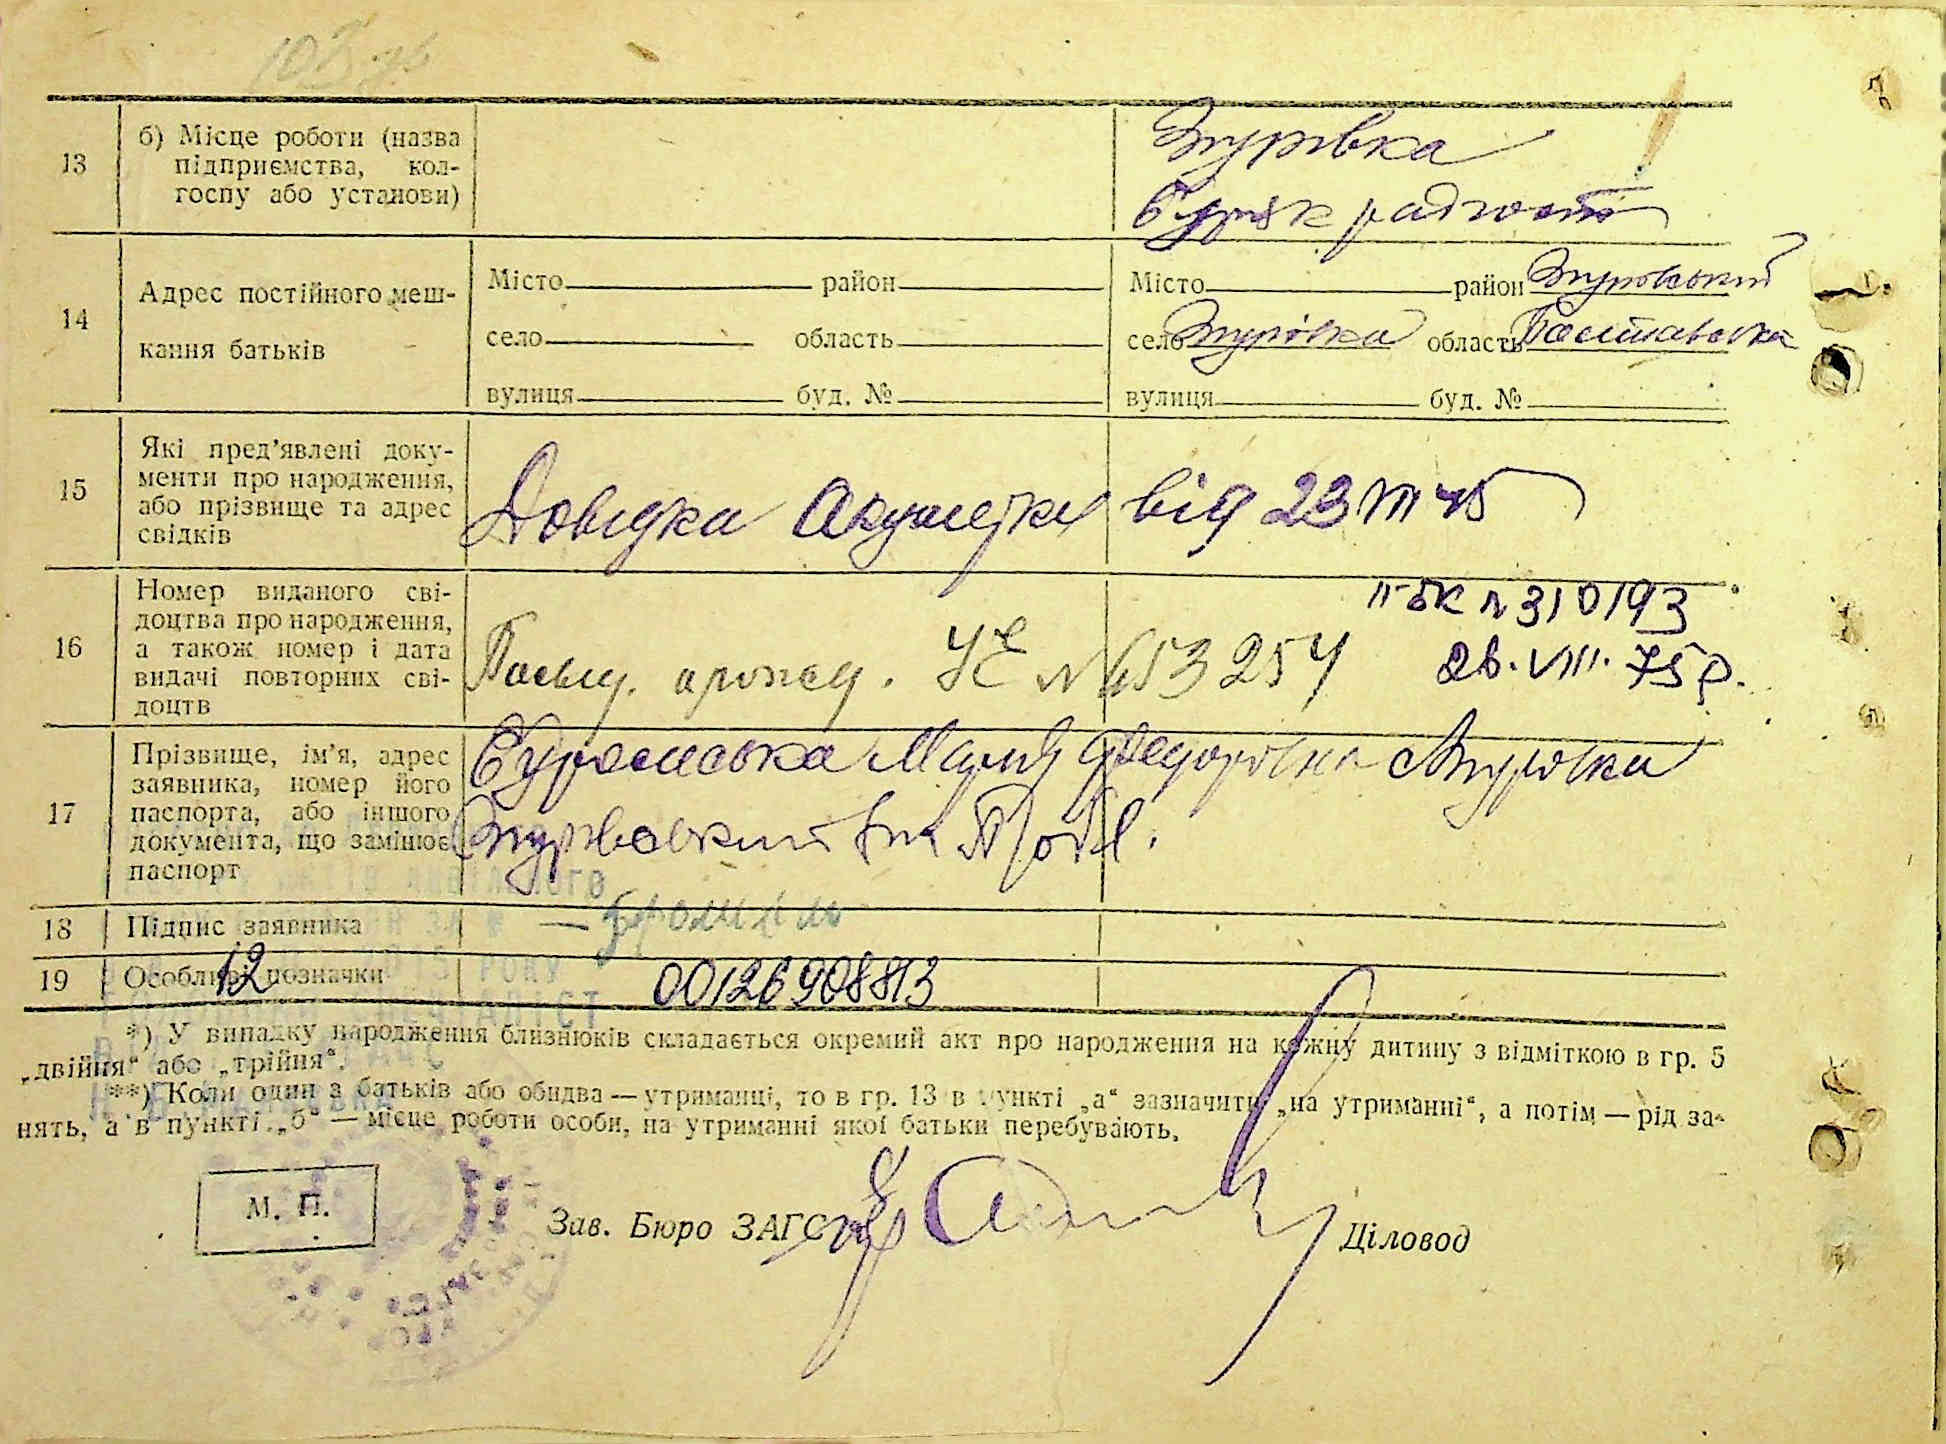 13
б) Місце роботи (назва
підприємства, кол-
госпу або установи)
Згурівка
буряк радгосп
14
Адрес постійного меш-
кання батьків
Місто район
село область
вулиця буд. №
Місто район Згурівський
село Згурівка область Полтавська
вулиця буд. №
15
Які пред’явлені доку-
менти про народження,
або прізвище та адрес
свідків
Довідка Акушерки від 23 VIII 45
16
Номер виданого сві-
доцтва про народження,
а також номер і дата
видачі повторних сві-
доцтв
ІІ-БК № 310193
26. VIII. 75 р.
№ 453254
17
Прізвище, ім’я, адрес
заявника, номер його
паспорта, або іншого
документа, що замінює
паспорт
Федоровна Згуровка
Згурівський
18
Підпис заявника
19
Особливі позначки
12
00126908813
*) У випадку народження близнюків складається окремий акт про народження на кожну дитину з відміткою в гр. 5
„двійня“ або „трійня“.
**) Коли один з батьків або обидва — утриманці, то в гр. 13 в пункті „а“ зазначити „на утриманні“, а потім — рід за-
нять, а в пункті „б“ — місце роботи особи, на утриманні якої батьки перебувають.
М. П.
Зав. Бюро ЗАГС
Діловод